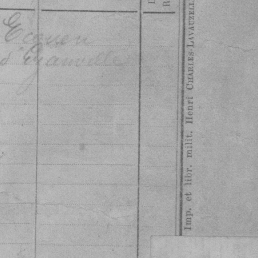 Ecouen
d'Ezanville
Imp. et libr. milit. Henri CHARLES-LAVAUZELLE